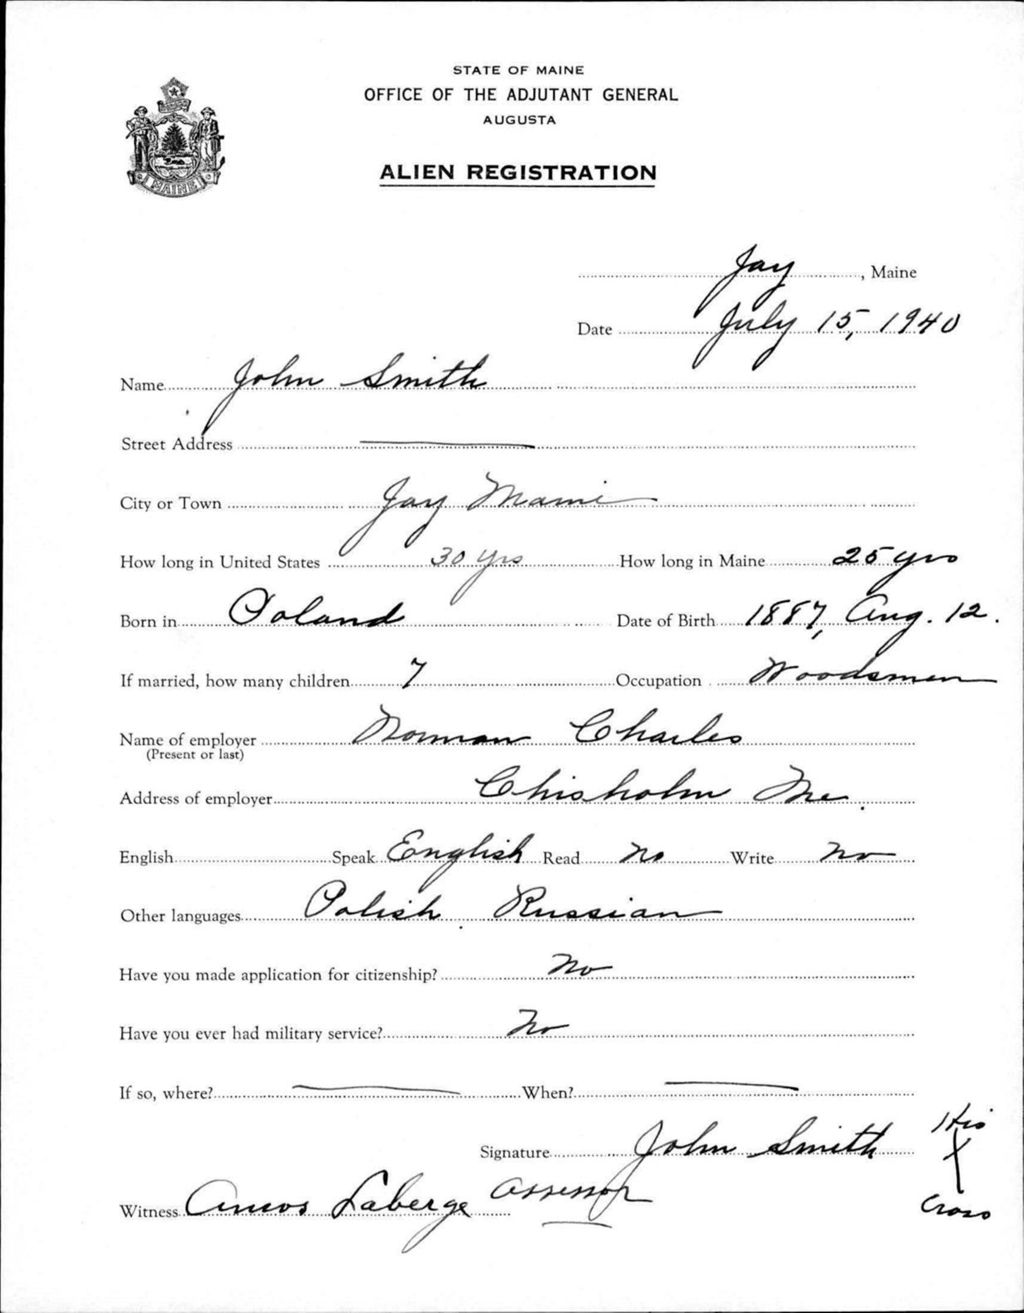 STATE OF MAINE
OFFICE OF THE ADJUTANT GENERAL
AUGUSTA
ALIEN REGISTRATION
MAINE
Jay, Maine
Date July 15, 1940
Name John Smith
Street Address
City or Town Jay Maine
How long in United States 30 yrs How long in Maine 25 yrs
Born in Poland Date of Birth 1887, Aug. 12.
If married, how many children 7 Occupation Woodsmen
Name of employer Norman Charles
(Present or last)
Address of employer Chisholm Me.
English Speak English Read No Write No
Other languages Polish Russian
Have you made application for citizenship? No
Have you ever had military service? No
If so, where? When?
Signature John Smith His X Cross
Witness Laberge Assessor